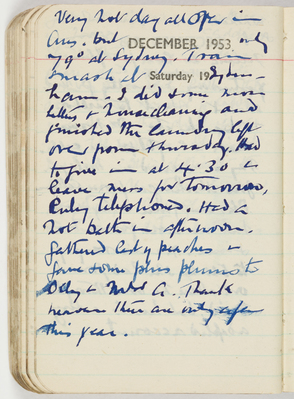 Very hot day all over in
Aus. but only
DECEMBER 1953
79° at Sydney. Train
smash at Syden-
Saturday 19
ham. I did some more
letters & housecleaning and
finished the laundry left
over from Thursday. Had
to give in at 4.30 &
leave mess for tomorrow,
Ruby telephoned. Had a
hot bath in afternoon.
gathered last of peaches &
gave some plus plums to
& Mrs A. Thank
heaven there are only a few
this year.